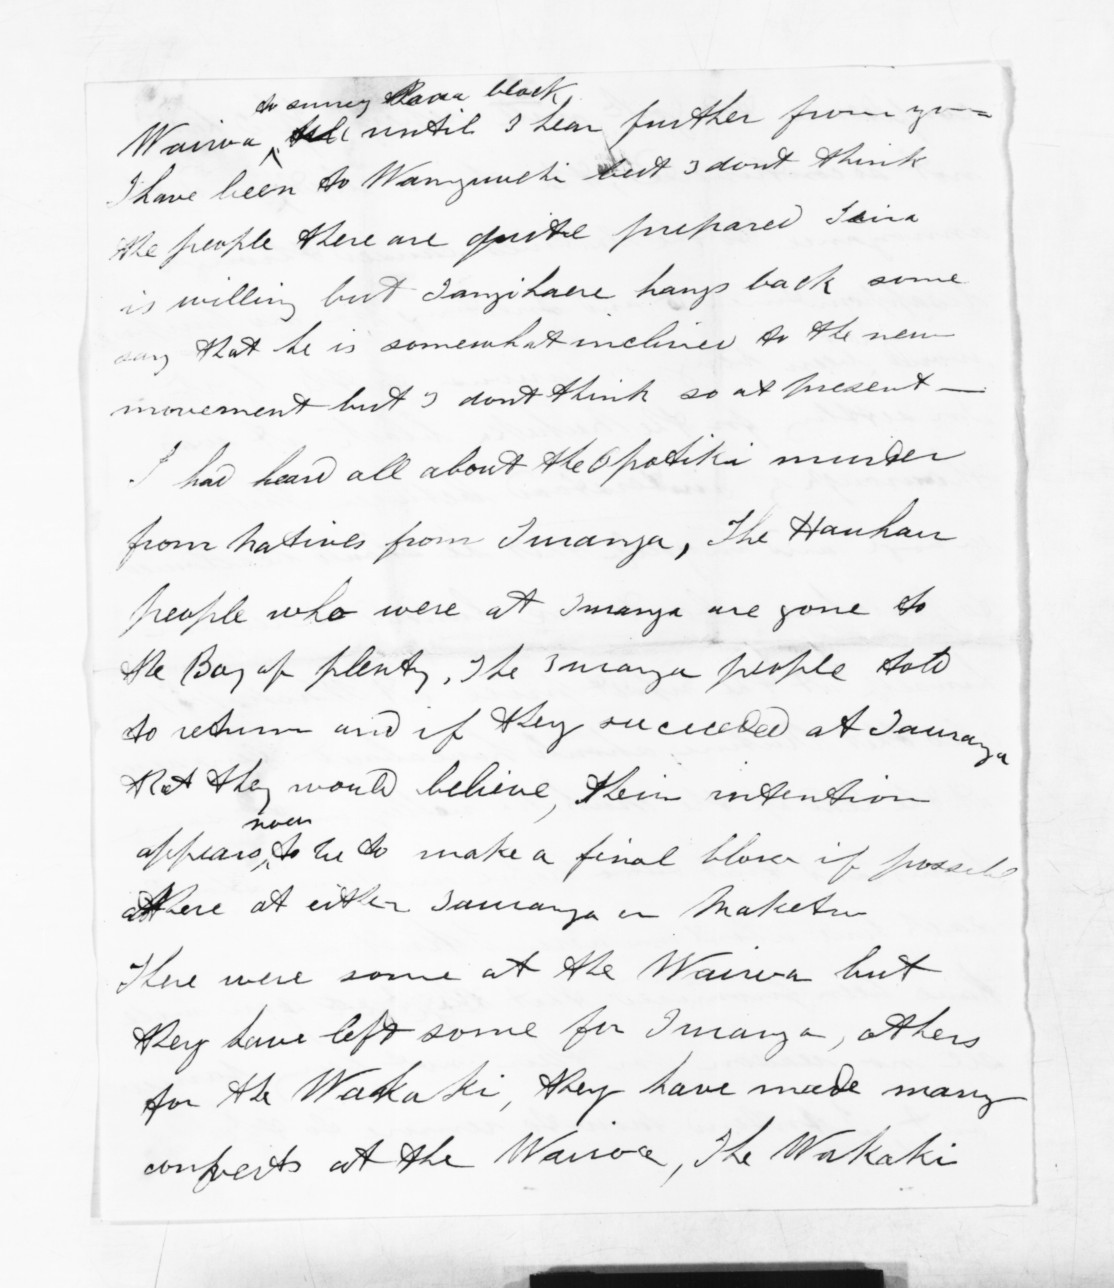 to survey block,
Wairoa, until I hear further from you
I have been to Wangawehi but I dont think
the people there are quite prepared Taira
is willing but Tangihaere hangs back some
say that he is somewhat inclined to the new
movement but I dont think so at present —
I had heard all about the Opotiki murder
from natives from Turanga, The Hauhau
people who were at Turanga are gone to
the Bay of plenty, The Turanga people told
to return and if they succeeded at Tauranga
that they would believe, their intention
now
appears, to be to make a final blow if possible
there at either Tauranga or Maketu
There were some at the Wairoa but
they have left some for Turanga, others
for the Wakaki, they have made many
converts at the Wairoa, The Wakaki